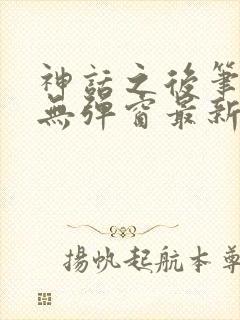 神話之後筆
無彈窗最新
揚帆起航本尊